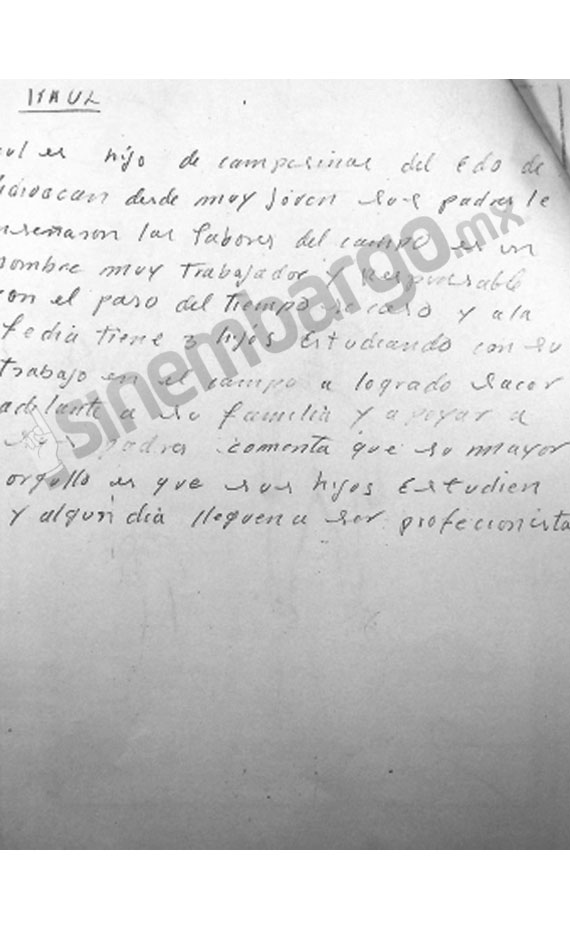 RAUL
ul es hijo de campesinas del Edo de
hoacan desde muy joven sus padres le
nseñaron las labores del campo es un
hombre muy Trabajador y Responsable
con el paso del Tiempo se caso y a la
fedia tiene 3 hijos Estudiando con su
Trabajo en el campo a logrado sacar
adelante a su familia y apoyar a
sus padres comenta que su mayor
orgullo es que sus hijos Estudien
y algun dia lleguen a ser profecionista
sinembargo.mx